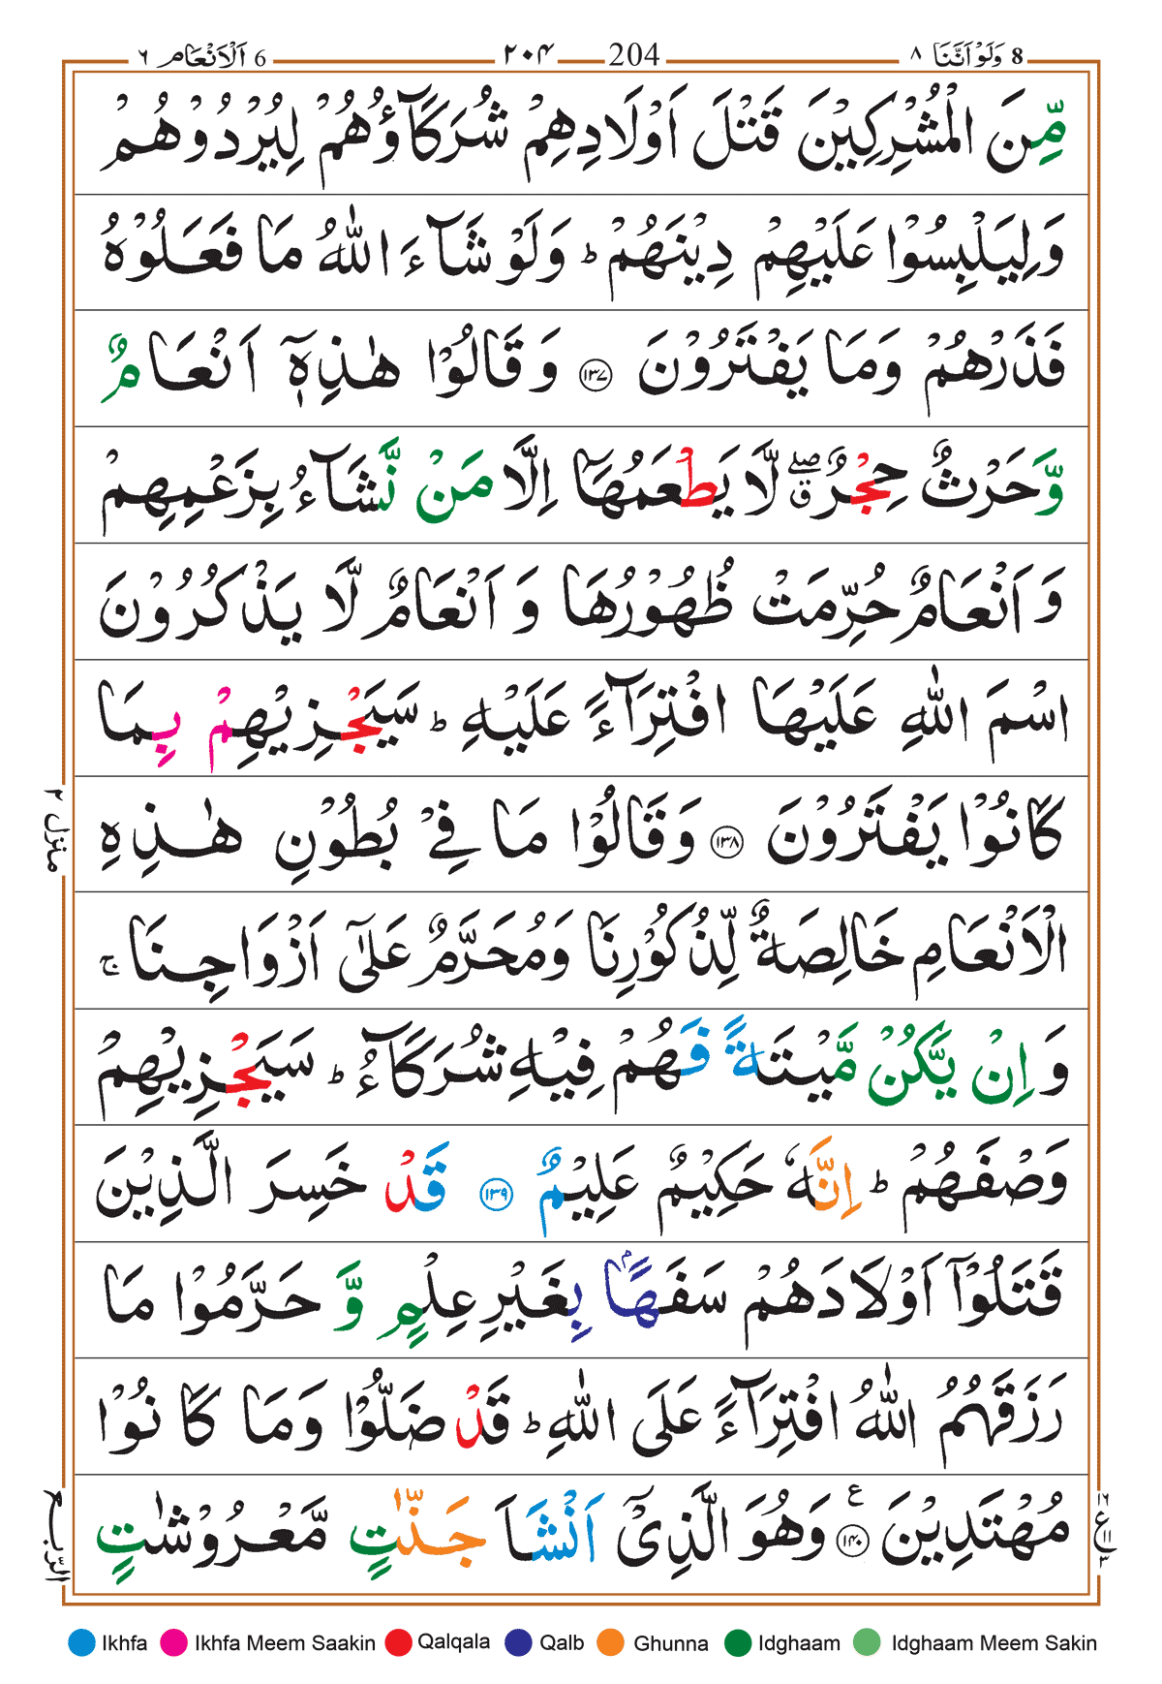 8 وَلَوْ اَنَّنَا ۸ 204 ۲۰۴ 6 اَلْاَنْعَام ۶
مِّنَ الْمُشْرِكِيْنَ قَتْلَ اَوْلَادِهِمْ شُرَكَآؤُهُمْ لِيُرْدُوْهُمْ
وَلِيَلْبِسُوْا عَلَيْهِمْ دِيْنَهُمْ ؕ وَلَوْ شَآءَ اللّٰهُ مَا فَعَلُوْهُ
فَذَرْهُمْ وَمَا يَفْتَرُوْنَ ۱۳۷ وَقَالُوْا هٰذِهٖۤ اَنْعَامٌ
وَّحَرْثٌ حِجْرٌ ۖق لَّا يَطْعَمُهَاۤ اِلَّا مَنْ نَّشَآءُ بِزَعْمِهِمْ
وَاَنْعَامٌ حُرِّمَتْ ظُهُوْرُهَا وَاَنْعَامٌ لَّا يَذْكُرُوْنَ
اسْمَ اللّٰهِ عَلَيْهَا افْتِرَآءً عَلَيْهِ ؕ سَيَجْزِيْهِمْ بِمَا
كَانُوْا يَفْتَرُوْنَ ۱۳۸ وَقَالُوْا مَا فِيْ بُطُوْنِ هٰذِهِ
الْاَنْعَامِ خَالِصَةٌ لِّذُكُوْرِنَا وَمُحَرَّمٌ عَلٰۤى اَزْوَاجِنَا ۚ
وَاِنْ يَّكُنْ مَّيْتَةً فَهُمْ فِيْهِ شُرَكَآءُ ؕ سَيَجْزِيْهِمْ
وَصْفَهُمْ ؕ اِنَّهٗ حَكِيْمٌ عَلِيْمٌ ۱۳۹ قَدْ خَسِرَ الَّذِيْنَ
قَتَلُوْۤا اَوْلَادَهُمْ سَفَهًاۢ بِغَيْرِ عِلْمٍ وَّحَرَّمُوْا مَا
رَزَقَهُمُ اللّٰهُ افْتِرَآءً عَلَى اللّٰهِ ؕ قَدْ ضَلُّوْا وَمَا كَانُوْا
مُهْتَدِيْنَ ۱۴۰ ع وَهُوَ الَّذِيْۤ اَنْشَاَ جَنّٰتٍ مَّعْرُوْشٰتٍ
منزل ۲
الرّبع
Ikhfa Ikhfa Meem Saakin Qalqala Qalb Ghunna Idghaam Idghaam Meem Sakin